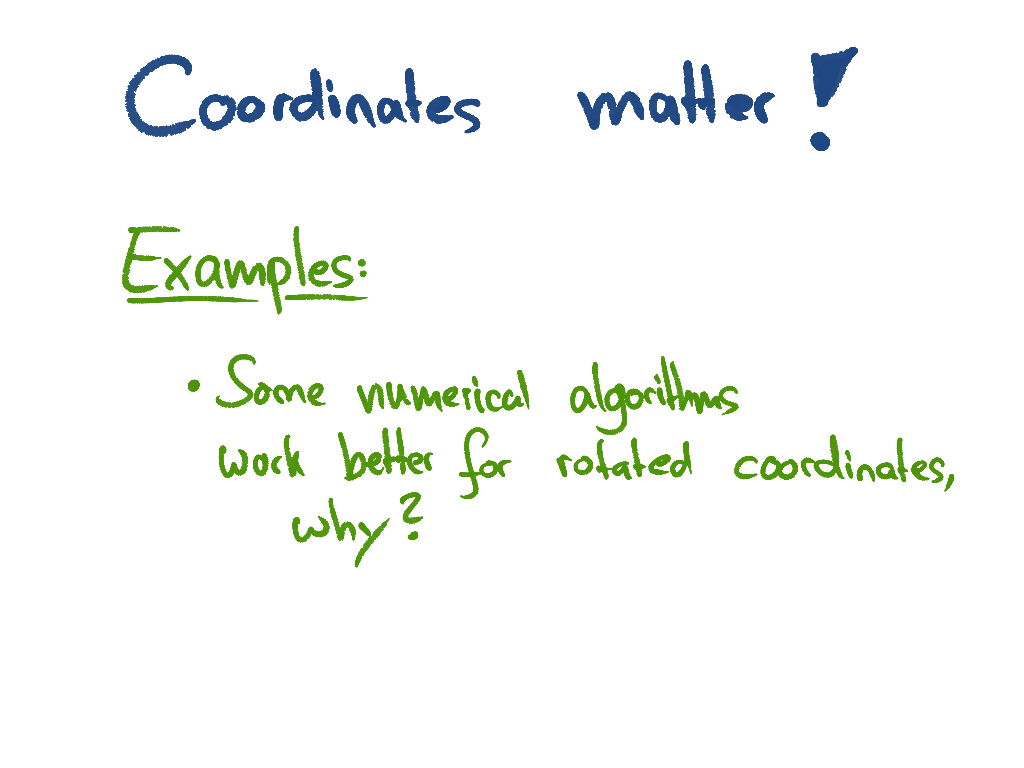 Coordinates matter!
Examples:
• Some numerical algorithms
work better for rotated coordinates,
why?